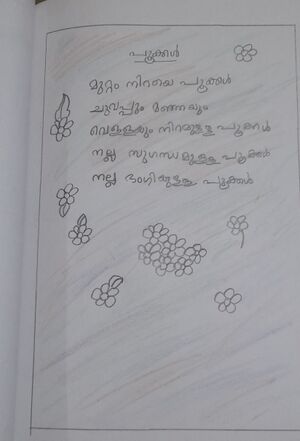 പൂക്കൾ
മുറ്റം നിറയെ പൂക്കൾ
ചുവപ്പും മഞ്ഞയും
വെള്ളയും നിറമുള്ള പൂക്കൾ
നല്ല സുഗന്ധമുള്ള പൂക്കൾ
നല്ല ഭംഗിയുള്ള പൂക്കൾ